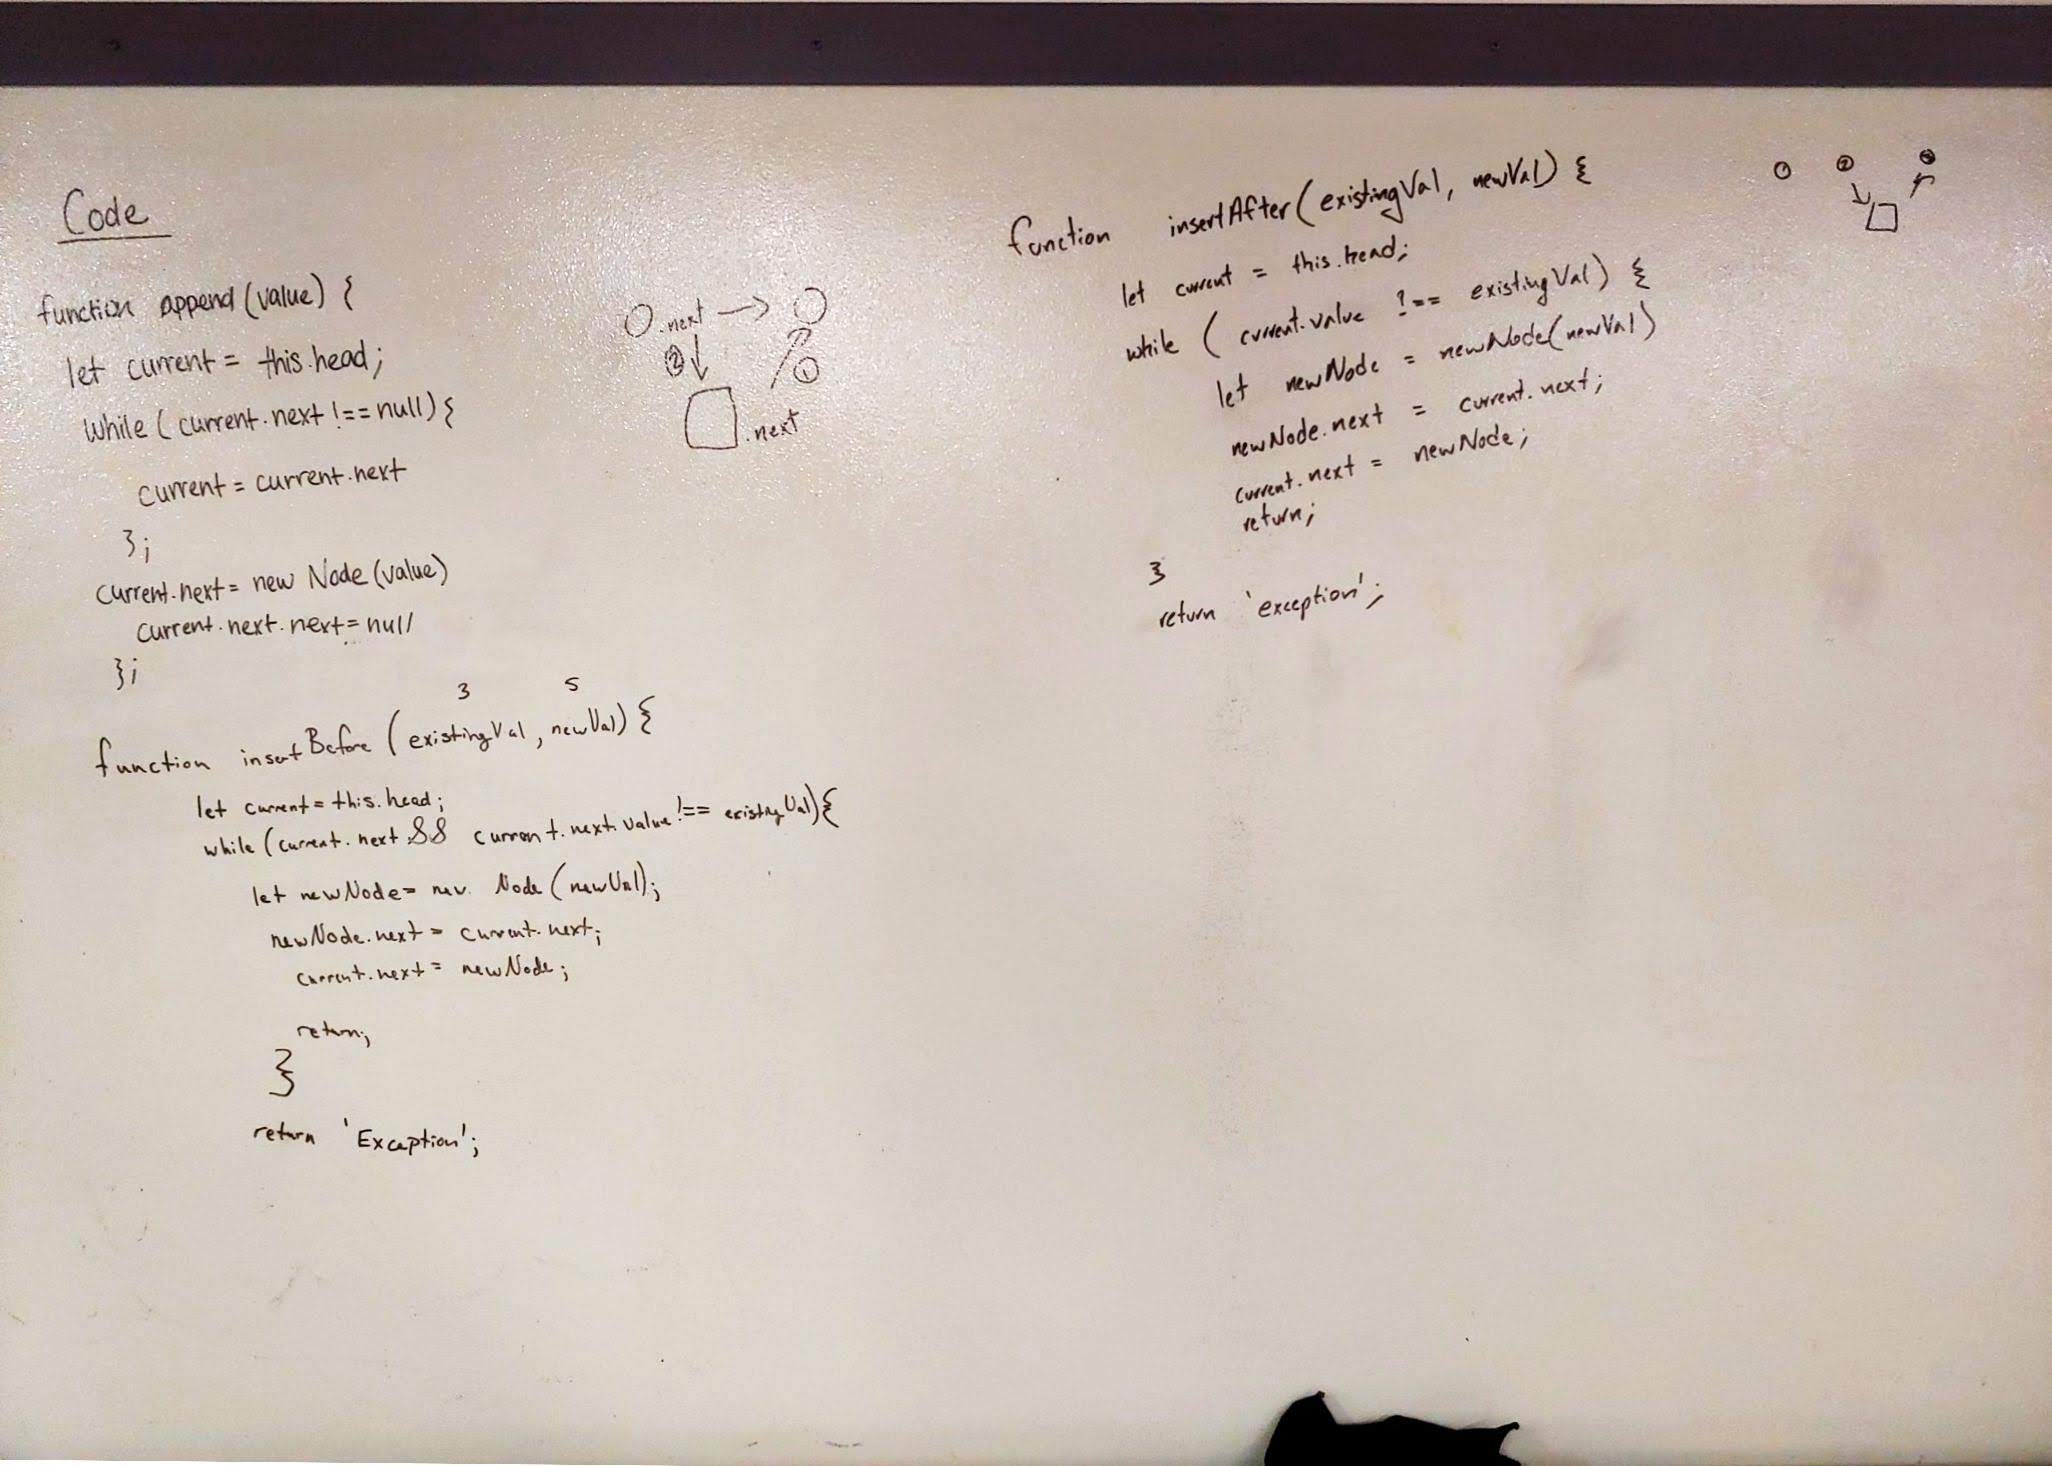 Code
function append(value) {
let current = this.head;
while (current.next !== null) {
current = current.next
};
current.next = new Node (value)
current.next.next = null
};
.next
2
1
.next
3 5
function insertBefore (existingVal, newVal) {
let current = this.head;
while (current.next && current.next.value !== existingVal) {
let newNode = new Node (newVal);
newNode.next = current.next;
current.next = newNode;
return;
}
return 'Exception';
function insertAfter (existingVal, newVal) {
let current = this.head;
while ( current.value !== existingVal) {
let newNode = newNode(newVal)
newNode.next = current.next;
current.next = newNode;
return;
}
return 'exception';
1 2 3